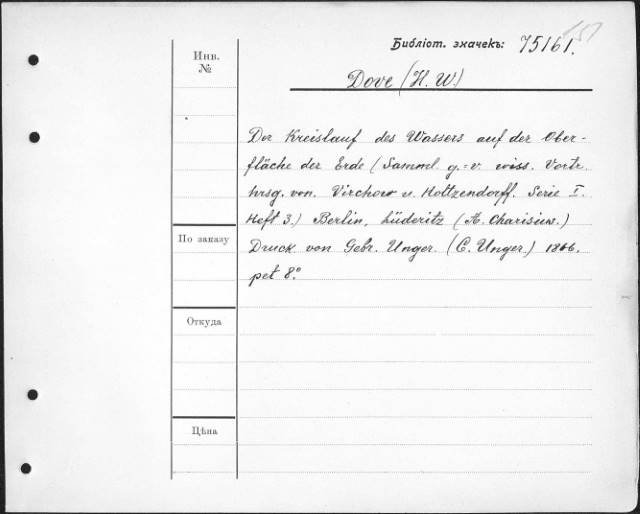 Библіот. значекъ: 75161.
Инв.
№
Dove (H. W)
Der Kreislauf des Wassers auf der Ober-
fläche der Erde (Samml. g.=v. wiss. Vortr.
hrsg. von. Virchow u. Holtzendorff. Serie I.
Heft 3.) Berlin, Lüderitz (A. Charisius.)
По заказу
Druck von Gebr. Unger. (C. Unger.) 1866.
pet 8°
Откуда
Цѣна